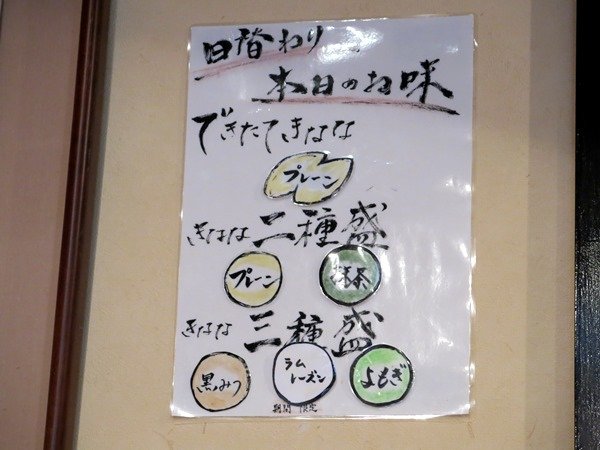 日替わり
本日のお味
できたてきなな
プレーン
きなな 二種盛
プレーン 抹茶
きなな 三種盛
黒みつ ラム
レーズン よもぎ
期間 限定